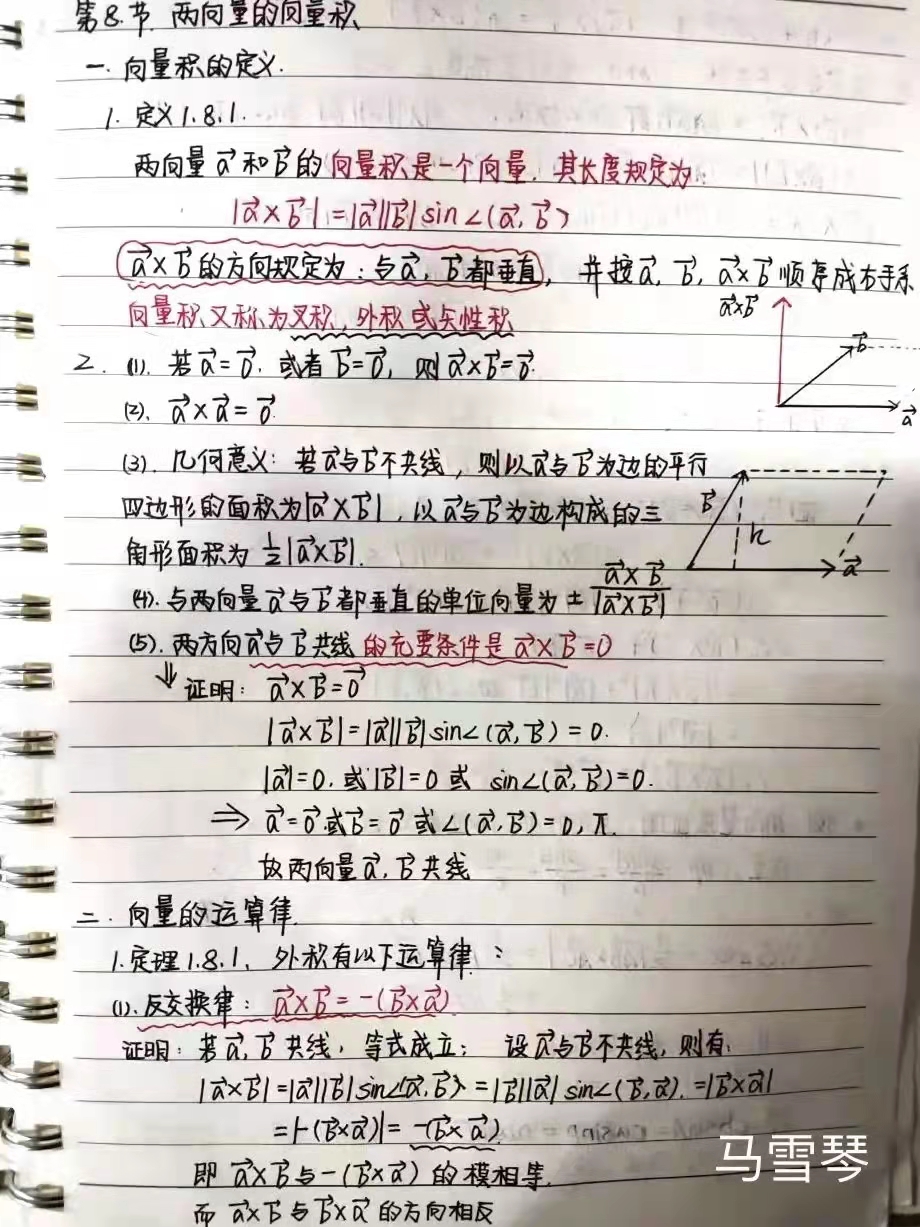 第8节 两向量的向量积
一. 向量积的定义.
1. 定义1.8.1.
两向量 a⃗ 和 b⃗ 的向量积是一个向量, 其长度规定为:
|a⃗×b⃗| = |a⃗||b⃗| sin∠(a⃗, b⃗)
a⃗×b⃗ 的方向规定为: 与a⃗, b⃗ 都垂直, 并按a⃗, b⃗, a⃗×b⃗ 顺序成右手系
向量积又称为叉积, 外积或矢性积
a⃗×b⃗
b⃗
a⃗
2. (1). 若 a⃗=0⃗. 或者 b⃗=0⃗, 则 a⃗×b⃗=0⃗.
(2). a⃗×a⃗=0⃗.
(3). 几何意义: 若a⃗与b⃗不共线, 则以a⃗与b⃗为边的平行
四边形的面积为|a⃗×b⃗|, 以a⃗与b⃗为边构成的三
角形面积为 ½|a⃗×b⃗|.
b⃗
h
a⃗
(4). 与两向量a⃗与b⃗都垂直的单位向量为 ± a⃗×b⃗/|a⃗×b⃗|
(5). 两方向a⃗与b⃗共线的充要条件是 a⃗×b⃗=0
⇓ 证明: a⃗×b⃗=0⃗
|a⃗×b⃗|=|a⃗||b⃗| sin∠(a⃗, b⃗) = 0.
|a⃗|=0. 或|b⃗|=0 或 sin∠(a⃗, b⃗)=0.
⇒ a⃗=0⃗ 或b⃗=0⃗ 或∠(a⃗, b⃗)=0, π.
故两向量a⃗, b⃗ 共线
二. 向量的运算律.
1. 定理1.8.1, 外积有以下运算律:
(1). 反交换律: a⃗×b⃗ = -(b⃗×a⃗)
证明: 若a⃗, b⃗ 共线, 等式成立; 设a⃗与b⃗不共线, 则有:
|a⃗×b⃗|=|a⃗||b⃗| sin∠(a⃗, b⃗) = |b⃗||a⃗| sin∠(b⃗, a⃗). =|b⃗×a⃗|
=|-(b⃗×a⃗)|= -(b⃗×a⃗).
即 a⃗×b⃗与-(b⃗×a⃗) 的模相等.
而 a⃗×b⃗ 与b⃗×a⃗ 的方向相反
马雪琴